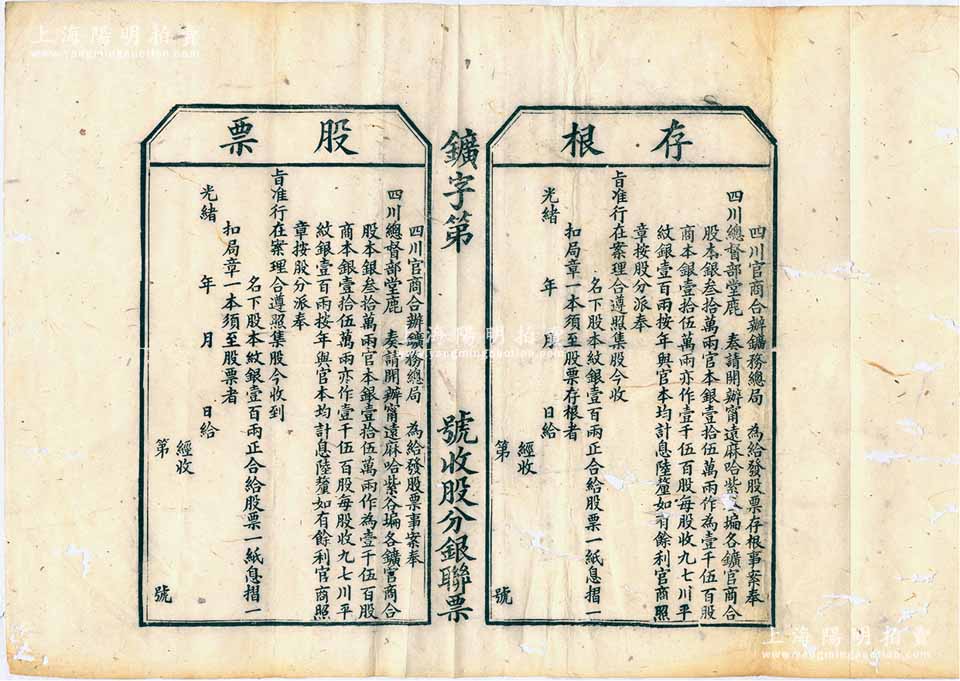 上海陽明拍賣
www.yangmingauction.com
存根
四川官商合辦鑛務總局 為給發股票存根事案奉
四川總督部堂鹿 奏請開辦甯遠麻哈紫 各鑛官商合
股本銀叁拾萬兩官本銀壹拾伍萬兩作為壹千伍百股
商本銀壹拾伍萬兩亦作壹千伍百股每股收九七川平
紋銀壹百兩按年與官本均計息陸釐如有餘利官商照
章按股分派奉
旨准行在案理合遵照集股今收
名下股本紋銀壹百兩正合給股票一紙息摺一
扣局章一本須至股票存根者
光緒 年 月 日給
經收
第 號
鑛字第 號收股分銀聯票
股票
四川官商合辦鑛務總局 為給發股票事案奉
四川總督部堂鹿 奏請開辦甯遠麻哈紫谷 各鑛官商合
股本銀叁拾萬兩官本銀壹拾伍萬兩作為壹千伍百股
商本銀壹拾伍萬兩亦作壹千伍百股每股收九七川平
紋銀壹百兩按年與官本均計息陸釐如有餘利官商照
章按股分派奉
旨准行在案理合遵照集股今收到
名下股本紋銀壹百兩正合給股票一紙息摺一
扣局章一本須至股票者
光緒 年 月 日給
經收
第 號
上海陽明拍賣
www.yangmingauction.com
上海陽明拍賣
www.yangmingauction.com